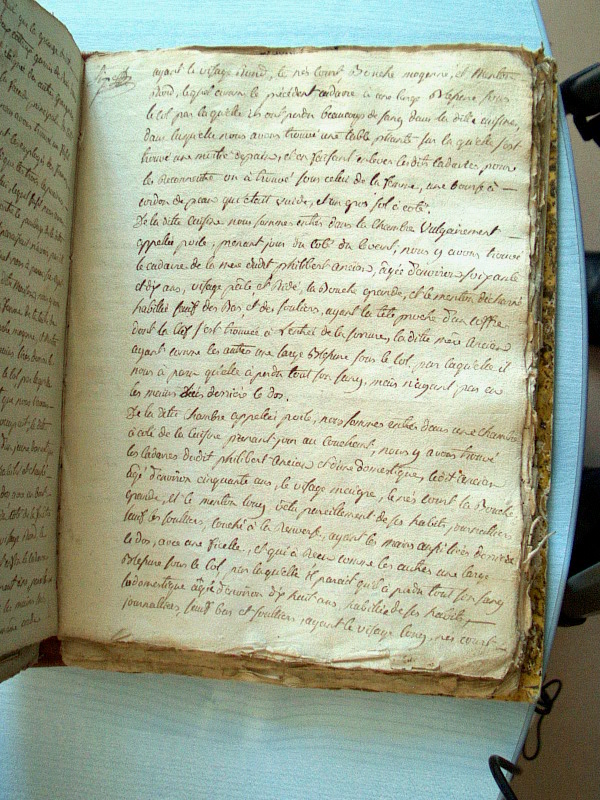 ayant le visage rond, le nés court Bouche moyenne, et Menton
rond, lequel comme le précédent cadavre à une large Blessure sous
le col par laquelle ils ont perdu beaucoup de sang dans la ditte cuisine,
dans laquelle nous avons trouvé une table pliante sur laquelle s'est
trouvé une de pain, et en faisant enlever les dits cadavres pour
les Reconnoitre on à trouvé sous celui de la femme, une bourse à
cordon de peau qui était vuide, et un gros sol à coté.
De la ditte Cuisine nous sommes entrés dans la Chambre Vulgairement
appellée poile, prenant jour du coté du levent, nous y avons trouvé
le cadavre de la mere dudit philibert Ancian, agée d'environ soixante
et dix ans, visage pâle et Ridé, la Bouche grande, et le menton
habillée sauf des Bas et des souliers, ayant la tête proche d'un coffre
dont la clef s'est trouvée à l'entrée de la serrure, la ditte mere Ancian
ayant comme les autres une large Blessure sous le col, par laquelle il
nous à paru qu'elle à perdu tout son sang, mais n'ayant pas eu
les mains liés derrière le dos.
De la ditte Chambre appellée poile, nous sommes entrés dans une chambre
à coté de la Cuisine prenant jour au couchent, nous y avons trouvé
les cadavres dudit philibert Ancian et d'une domestique, ledit Ancian
agé d'environ cinquante ans, le visage maigre, le nés court la Bouche
grande, et le menton long vetu pareillement de ses habits journalliers
sauf les souliers, couché à la Renverse, ayant les mains aussi liées derrière
le dos, avec une ficelle, et qui à Recu comme les autres une large
Blessure sous le col, par laquelle il parait qu'il à perdu tout son sang
la domestique agée d'environ dix huit ans, habillée de ses habits
journalliers, sauf bas et souliers, ayant le visage long, nés court